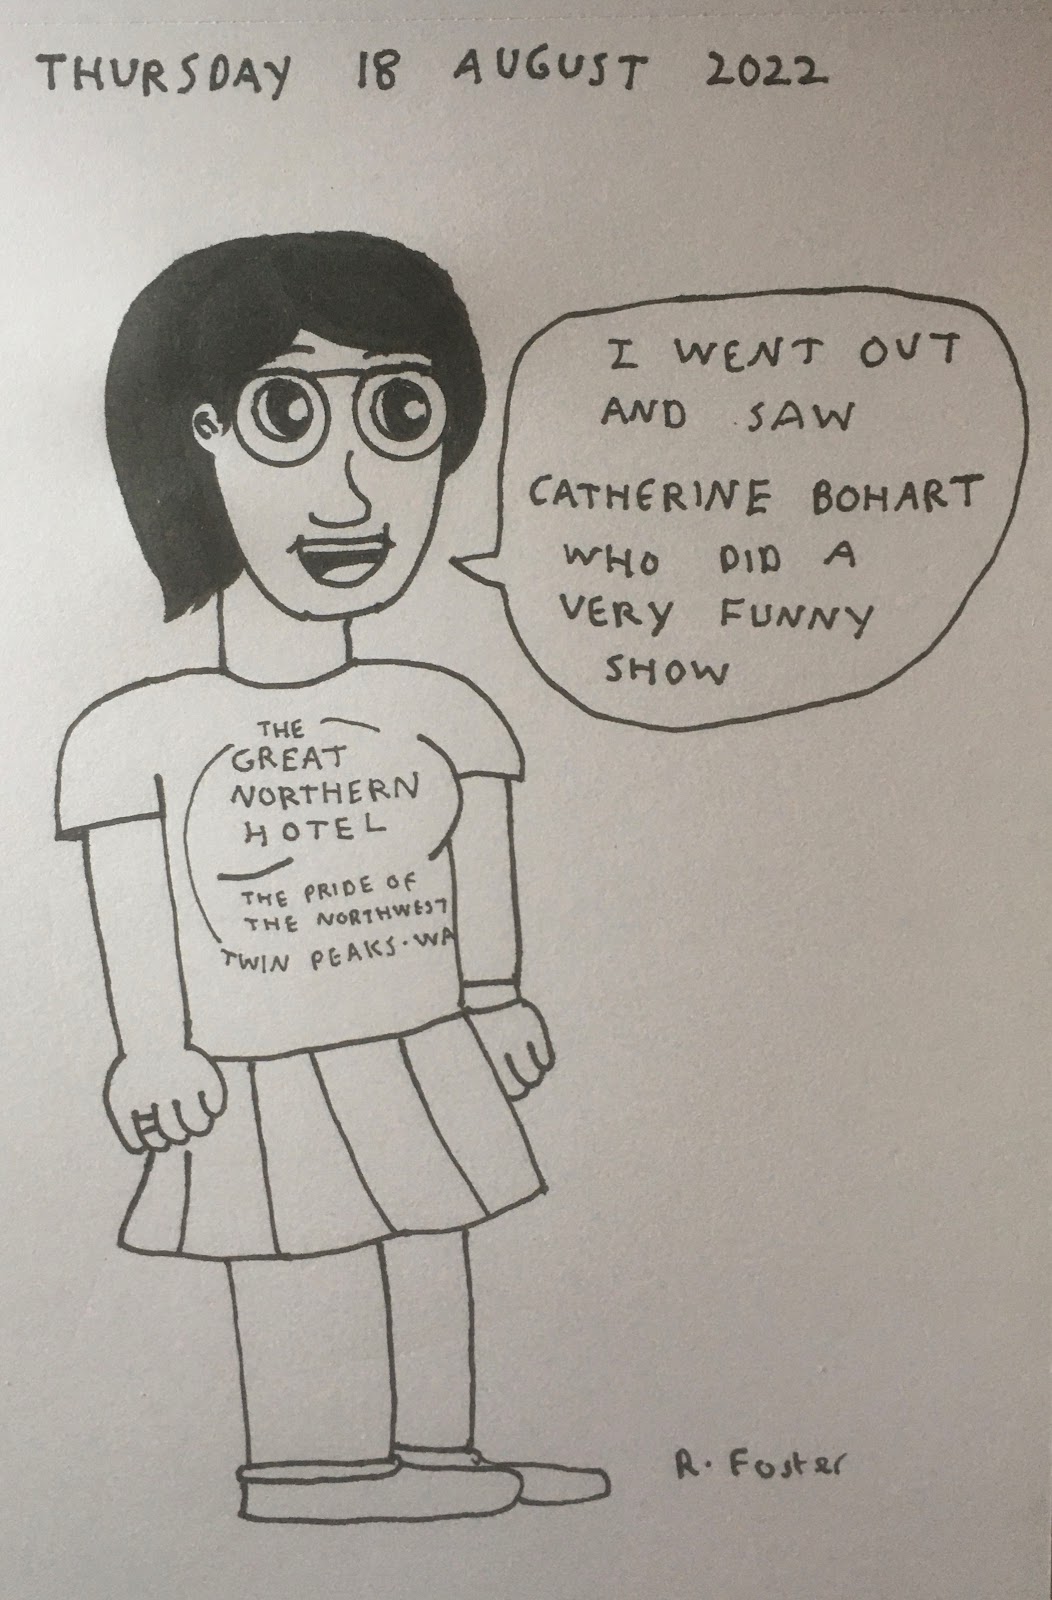 THURSDAY 18 AUGUST 2022
I WENT OUT
AND SAW
CATHERINE BOHART
WHO DID A
VERY FUNNY
SHOW
THE
GREAT
NORTHERN
HOTEL
THE PRIDE OF
THE NORTHWEST
TWIN PEAKS·WA
R. Foster